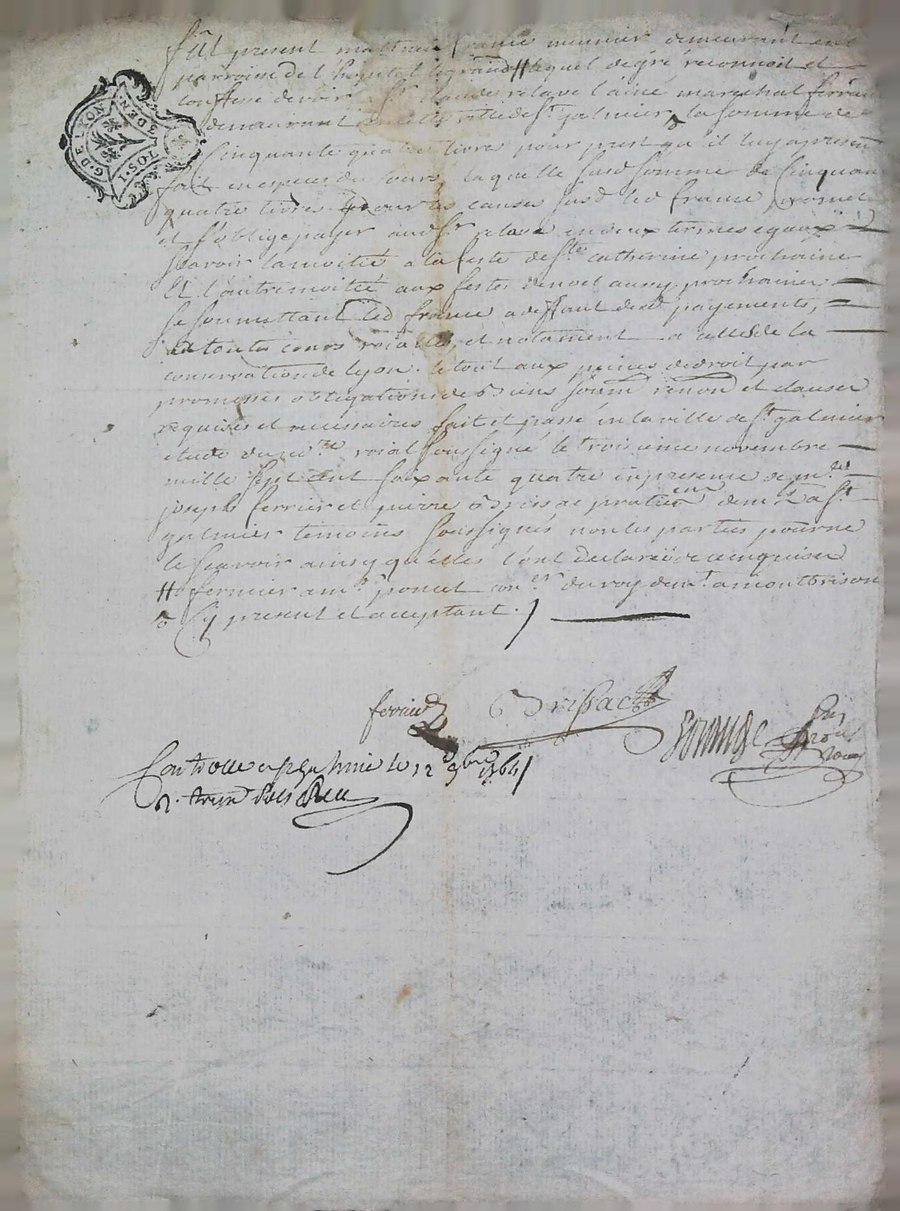 fut present mathieu france meunier demeurant en la
parroisse de l'hopital legrand # lequel de gré reconnoit et
confesse devoir a Sr claude relave l'ainé marechal ferrant
demeurant en cette ville de St galmier la somme de
Cinquante quatre livres pour prest qu'il luy a present
fait en especes du cours, laquelle susd somme de Cinquante
quatre livres pour les causes susd led france promet
et s'oblige payer aud Sr relave en deux termes egaux
scavoir la moitié a la feste de Ste catherine prochaine
Et l'autre moitié aux festes denoel aussy prochaines
se soumettant led france a deffaut desd payements,
a toutes cours roialles et notament a celle de la
conservation de lyon. le tout aux peines de droit par
promesses obligations de biens soum renon et clauses
requises et necessaires fait et passé en la ville de St galmier
etude du nore roial soussigné le troisieme novembre
mille sept cent soixante quatre en presence de me
joseph ferrier et pierre brissac praticien demts a St
galmier temoins soussignés non les parties pour ne
le scavoir ainsy qu'elles l'ont declaré de ce enquises
# fermier a mr poncet coner du roy demt a montbrison
Cy present et acceptant.
G. DE LYON
1. SOL
3 DEN
ferrier
Brissac
Controllé a St galmier le 12 9bre 1764